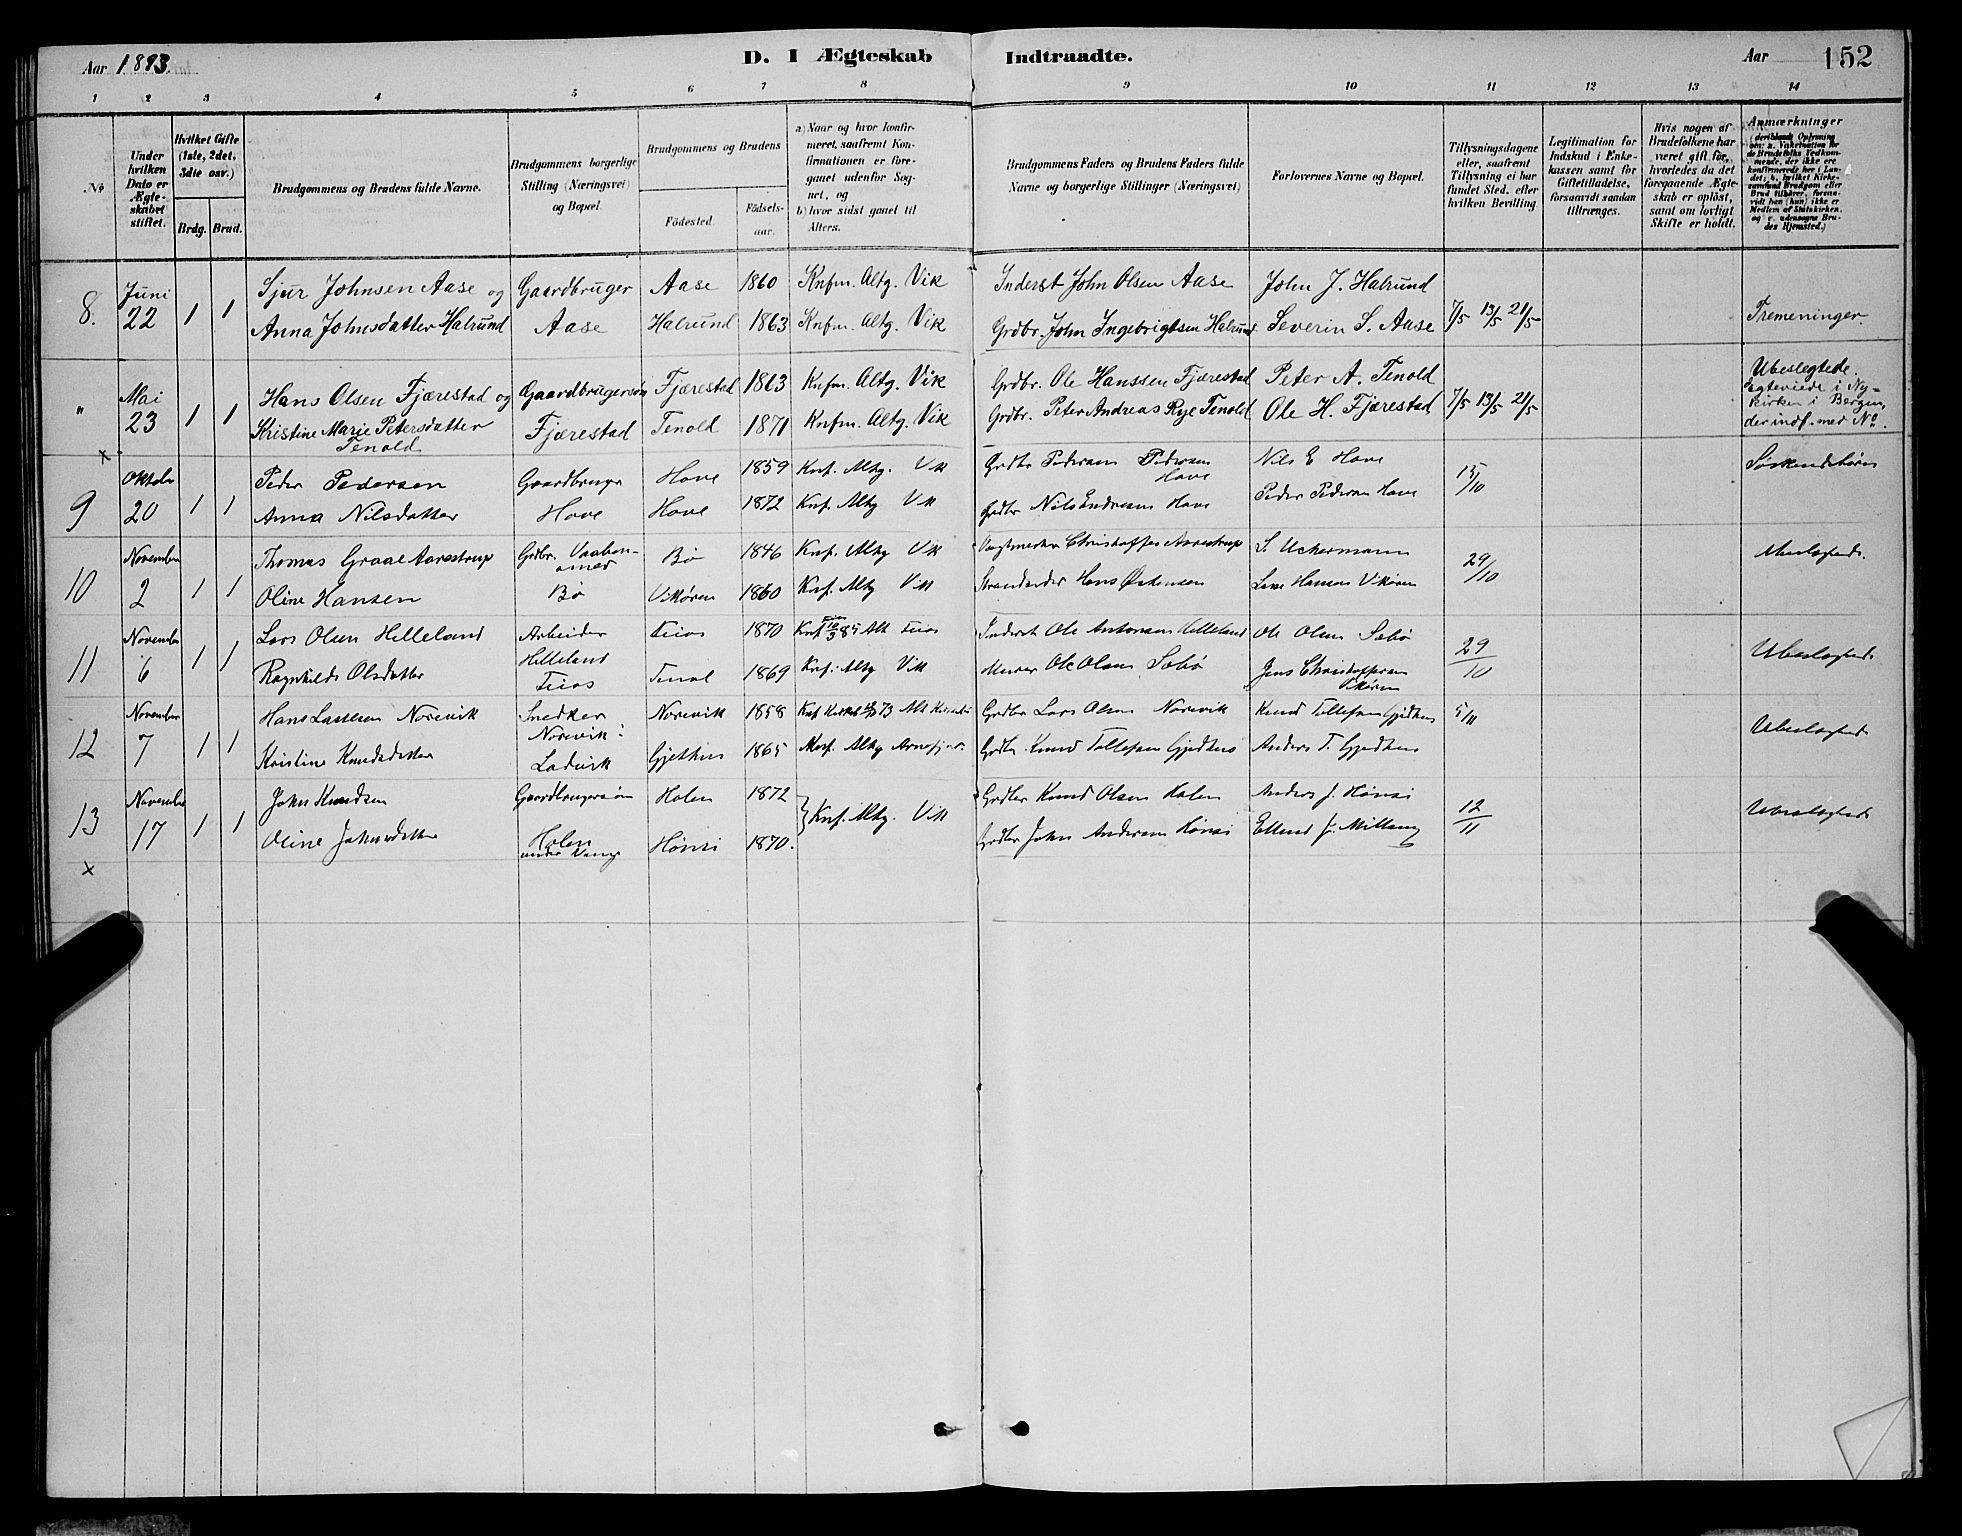 Aar 1893.
D. I Ægteskab Indtraadte.
Aar 152
1 2 3 4 5 6 7 8 9 10 11 12 13 14
No
Under hvilken Dato er Ægteskabet stiftet.
Hvilket Gifte (1ste, 2det, 3die osv.)
Brdg. Brud.
Brudgommens og Brudens fulde Navne.
Brudgommens borgerlige Stilling (Næringsvei) og Bopæl.
Brudgommens og Brudens
Födested.
Födselsaar.
a) Naar og hvor konfirmeret, saafremt Konfirmationen er foregaaet udenfor Sognet, og
b) hvor sidst gaaet til Alters.
Brudgommens Faders og Brudens Faders fulde Navne og borgerlige Stillinger (Næringsvei)
Forlovernes Navne og Bopæl.
Tillysningsdagene eller, saafremt Tillysning ei har fundet Sted, efter hvilken Bevilling.
Legitimation for Indskud i Enkekassen samt for Giftetilladelse, forsaavidt saadan tiltrænges.
Hvis nogen af Brudefolkene har været gift för, hvorledes da det foregaaende Ægteskab er oplöst, samt om lovligt Skifte er holdt.
Anmærkninger
8. Juni 22 1 1 Sjur Johnsen Aase og Gaardbruger Aase 1860 Knfm. Altg. Vik Inderst John Olsen Aase John J. Halrund
Anna Johnsdatter Halrund Aase Halrund 1863 Knfm. Altg. Vik Grdbr. John Ingebrigtsen Halrund Severin S. Aase 7/5 13/5 21/5 Tremeninger.
" Mai 23 1 1 Hans Olsen Fjærestad og Gaardbrugersøn Fjærestad 1863 Knfm. Altg. Vik Grdbr. Ole Hanssen Fjærestad Peter A. Tenold Ubeslegtede.
Kristine Marie Petersdatter Tenold Fjærestad Tenold 1871 Knfm. Altg. Vik Grdbr. Peter Andreas Rye Tenold Ole H. Fjærestad 7/5 13/5 21/5 Egteviede i Nykirken i Bergen, der indf. med No.
x
9 Oktober 20 1 1 Peder Pedersen Gaardbruger Hove 1859 Knf. Altg. Vik Grdbr Pedersen Hove Nils E Hove 15/10 Søskendebørn
Anna Nilsdatter Hove Hove 1872 Knf. Altg Vik Grdbr Nils Endresen Hove Peder Pedersen Hove
10 November 2 1 1 Thomas Graae Aarestrup Grdbr. Vaabensmed Bø 1846 Knf. Altg Vik Christoffer Aarestrup S. Uchermann 29/10 Ubeslegtede.
Oline Hansen Bø Vikøren 1860 Knf. Altg Vik Strandsidder Hans Hansen Vikøren
11 November 6 1 1 Lars Olsen Helleland Arbeider Feios 1870 Knf Alt Feios Inderst Ole Antonsen Helleland Ole Olsen Sæbø 29/10 Ubeslegtede
Ragnhilde Olsdatter Helleland Feios Tenol 1869 Knf. Altg Vik Murer Ole Olsen Sæbø Jens Christoffersen Vikøren
12 November 7 1 1 Hans Lassesen Norevik Snedker Norevik 1858 Knf 73 Alt Grdbr Lars Olsen Norevik Knud Tollefsen Gjedhus 5/11 Ubeslegtede
Kristine Knudsdatter Norevik: Ladvik Gjethus 1865 Altg Arnefjord Grdbr. Knud Tollefsen Gjedhus Anders T. Gjedhus
13 November 17 1 1 John Knudsen Gaardbrugersøn Holen 1872 Knf. Altg. Vik Grdbr Knud Olsen Holen Anders J. Hønsi 12/11 Ubeslegtede
Oline Johnsdatter Holen under Vange Hønsi 1870. Grdbr John Andersen Hønsi Ellend J.
x